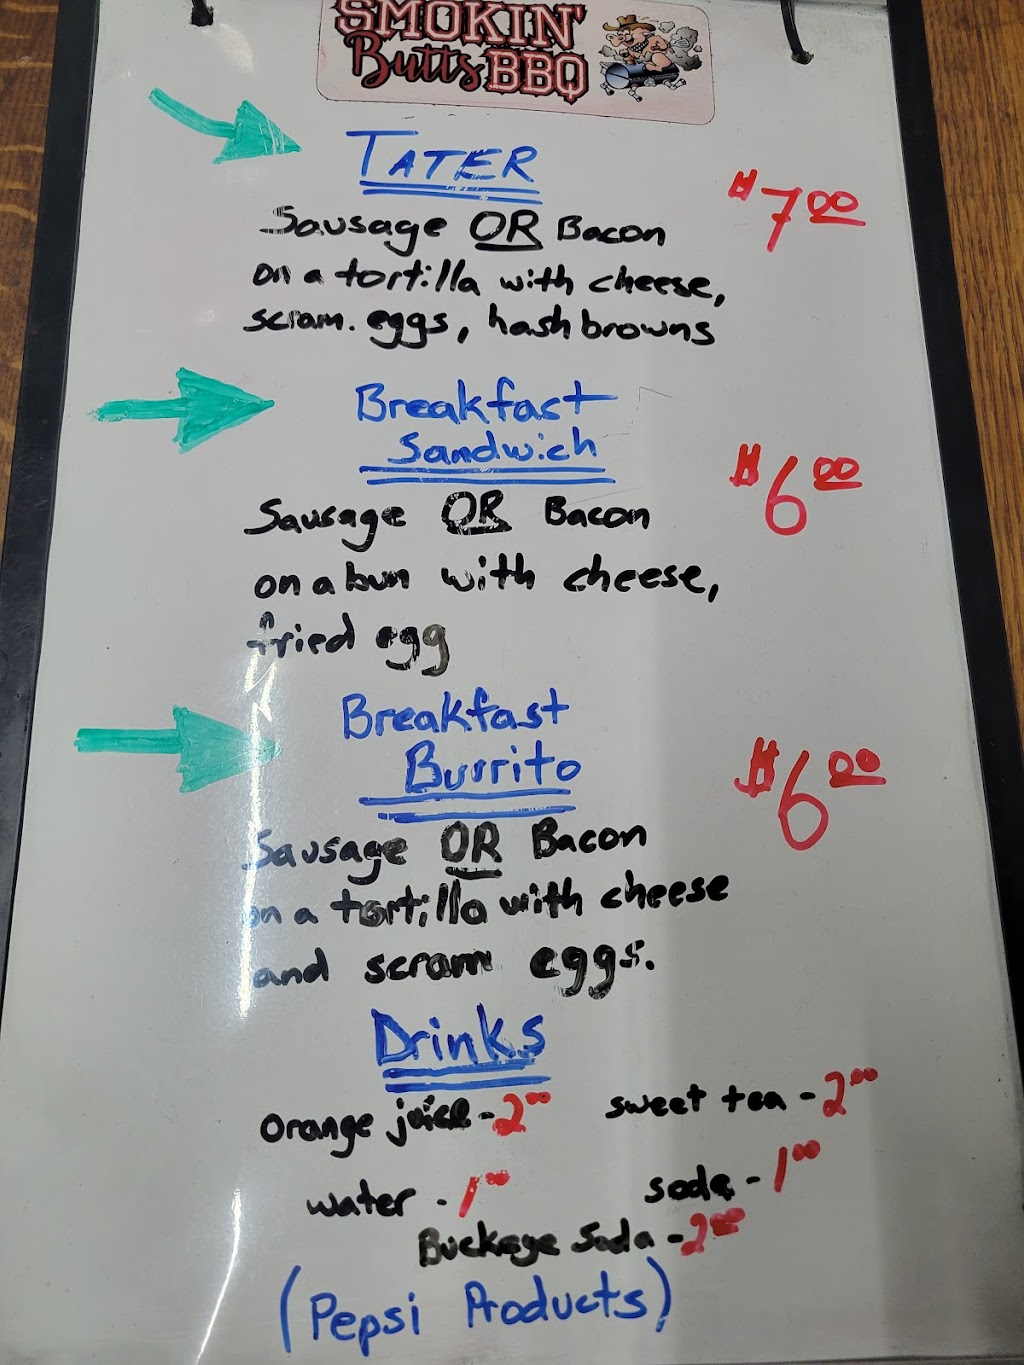 SMOKIN'
Butts BBQ
TATER
$7.00
Sausage OR Bacon
on a tortilla with cheese,
scram. eggs, hashbrowns
Breakfast
Sandwich
$6.00
Sausage OR Bacon
on a bun with cheese,
fried egg
Breakfast
Burrito
$6.00
Sausage OR Bacon
on a tortilla with cheese
and scram eggs.
Drinks
Orange juice - 2.00
sweet tea - 2.00
water - 1.00
soda - 1.00
Buckeye Soda - 2.00
(Pepsi Products)